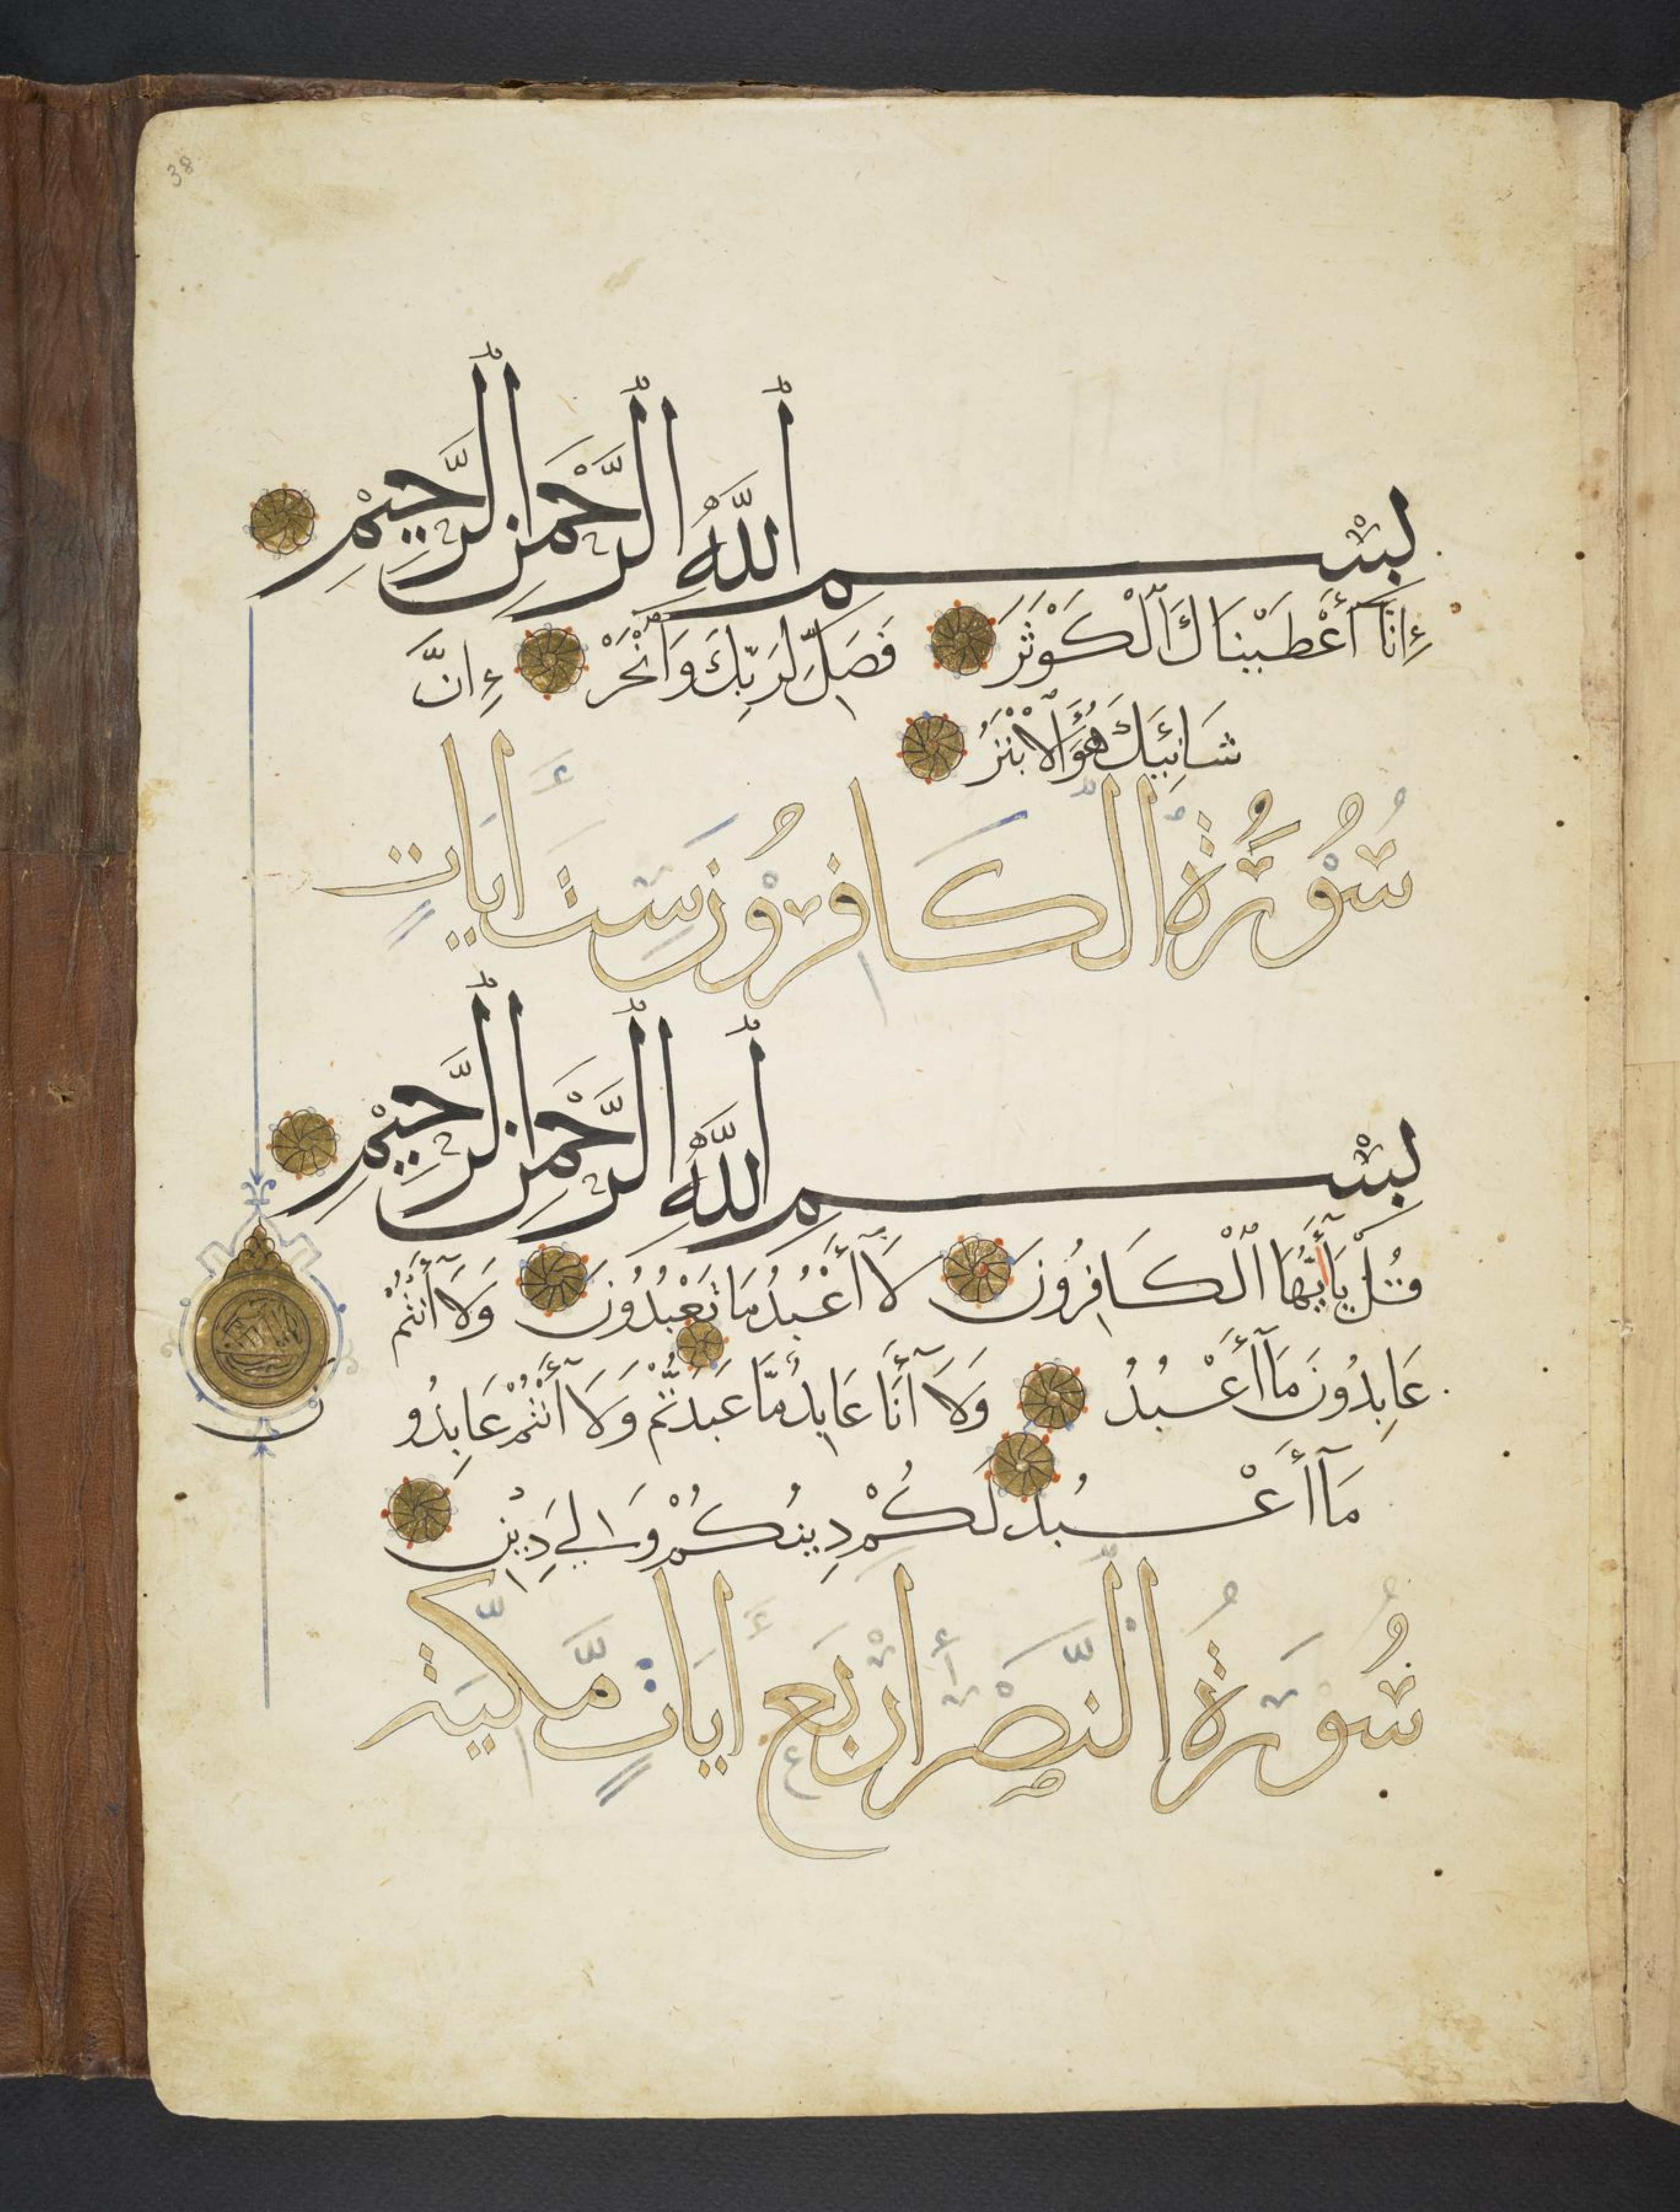 38
بِسْمِ ٱللَّهِ ٱلرَّحْمَٰنِ ٱلرَّحِيمِ
إِنَّا أَعْطَيْنَاكَ ٱلْكَوْثَرَ فَصَلِّ لِرَبِّكَ وَٱنْحَرْ إِنَّ
شَانِئَكَ هُوَ ٱلْأَبْتَرُ
سُورَةُ الْكَافِرُونَ سِتُّ أَيَاتٍ
بِسْمِ ٱللَّهِ ٱلرَّحْمَٰنِ ٱلرَّحِيمِ
قُلْ يَا أَيُّهَا ٱلْكَافِرُونَ لَا أَعْبُدُ مَا تَعْبُدُونَ وَلَا أَنْتُمْ
عَابِدُونَ مَا أَعْبُدُ وَلَا أَنَا عَابِدٌ مَّا عَبَدتُّمْ وَلَا أَنْتُمْ عَابِدُو
ن
مَا أَعْبُدُ لَكُمْ دِينُكُمْ وَلِيَ دِينِ
سُورَةُ النَّصْرِ أَرْبَع أَيَاتٍ مَّكِّيَّة